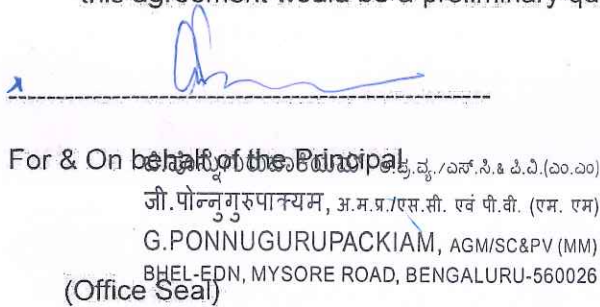 this agreement would be a preliminary qua
For & On behalf of the Principal
ಅ.ಪ್ರ.ವ್ಯ./ಎಸ್.ಸಿ.& ಪಿ.ವಿ.(ಎಂ.ಎಂ)
जी.पोन्नुगुरुपाक्यम, अ.म.प्र./एस.सी. एवं पी.वी. (एम. एम)
G.PONNUGURUPACKIAM, AGM/SC&PV (MM)
BHEL-EDN, MYSORE ROAD, BENGALURU-560026
(Office Seal)